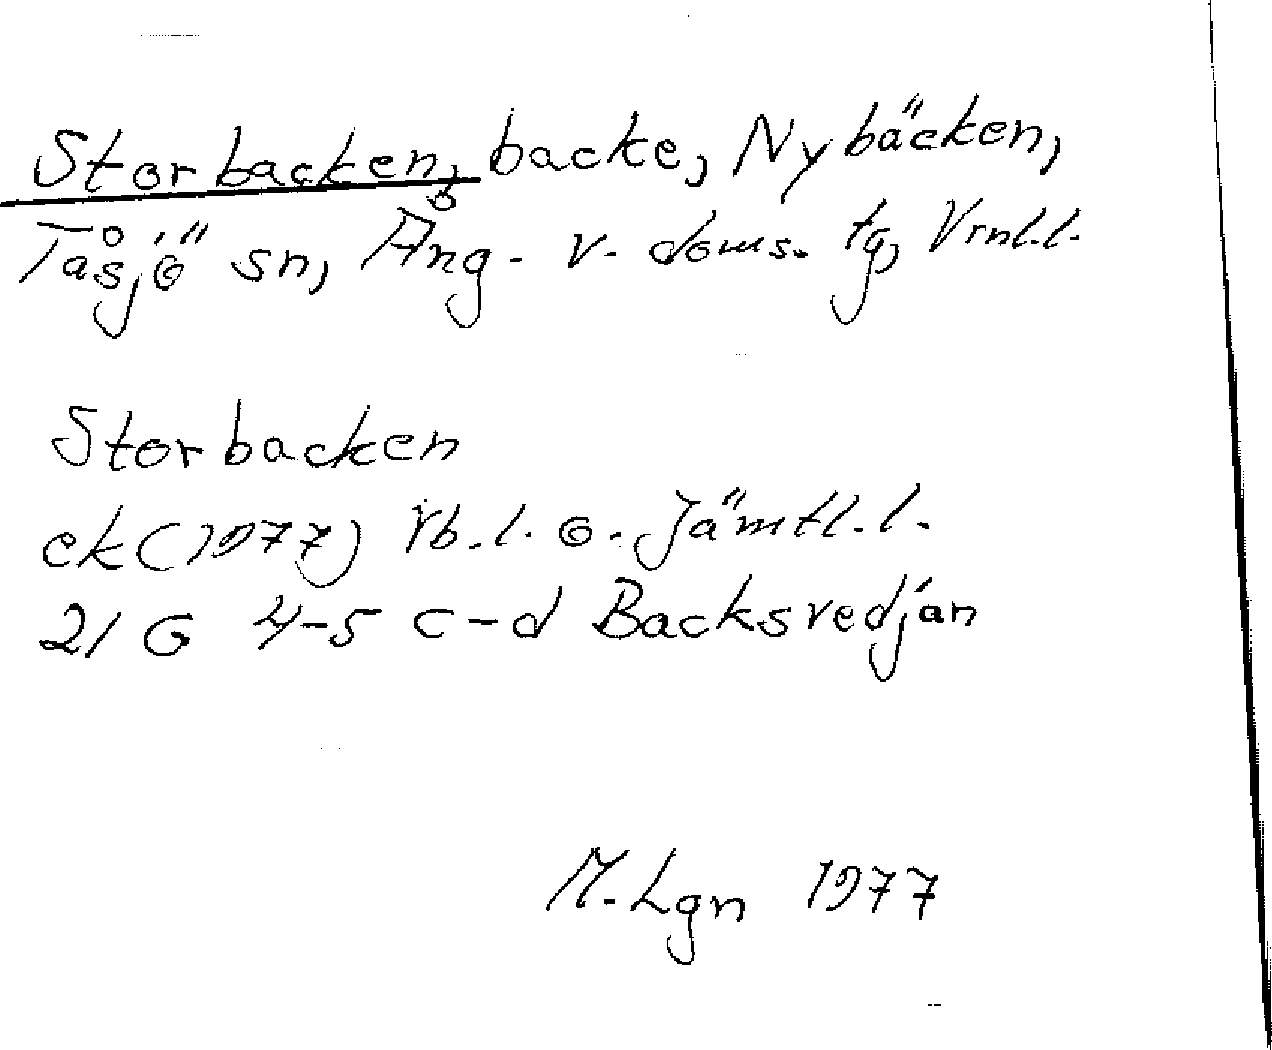 Storbacken, backe, Nybäcken,
Tåsjö sn, Ång. v. doms. tg, Vrnl.l.
Storbacken
ek (1977) Vb.l. o. Jämtl.l.
21 G 4-5 c-d Backsvedjan
M. Lgn 1977